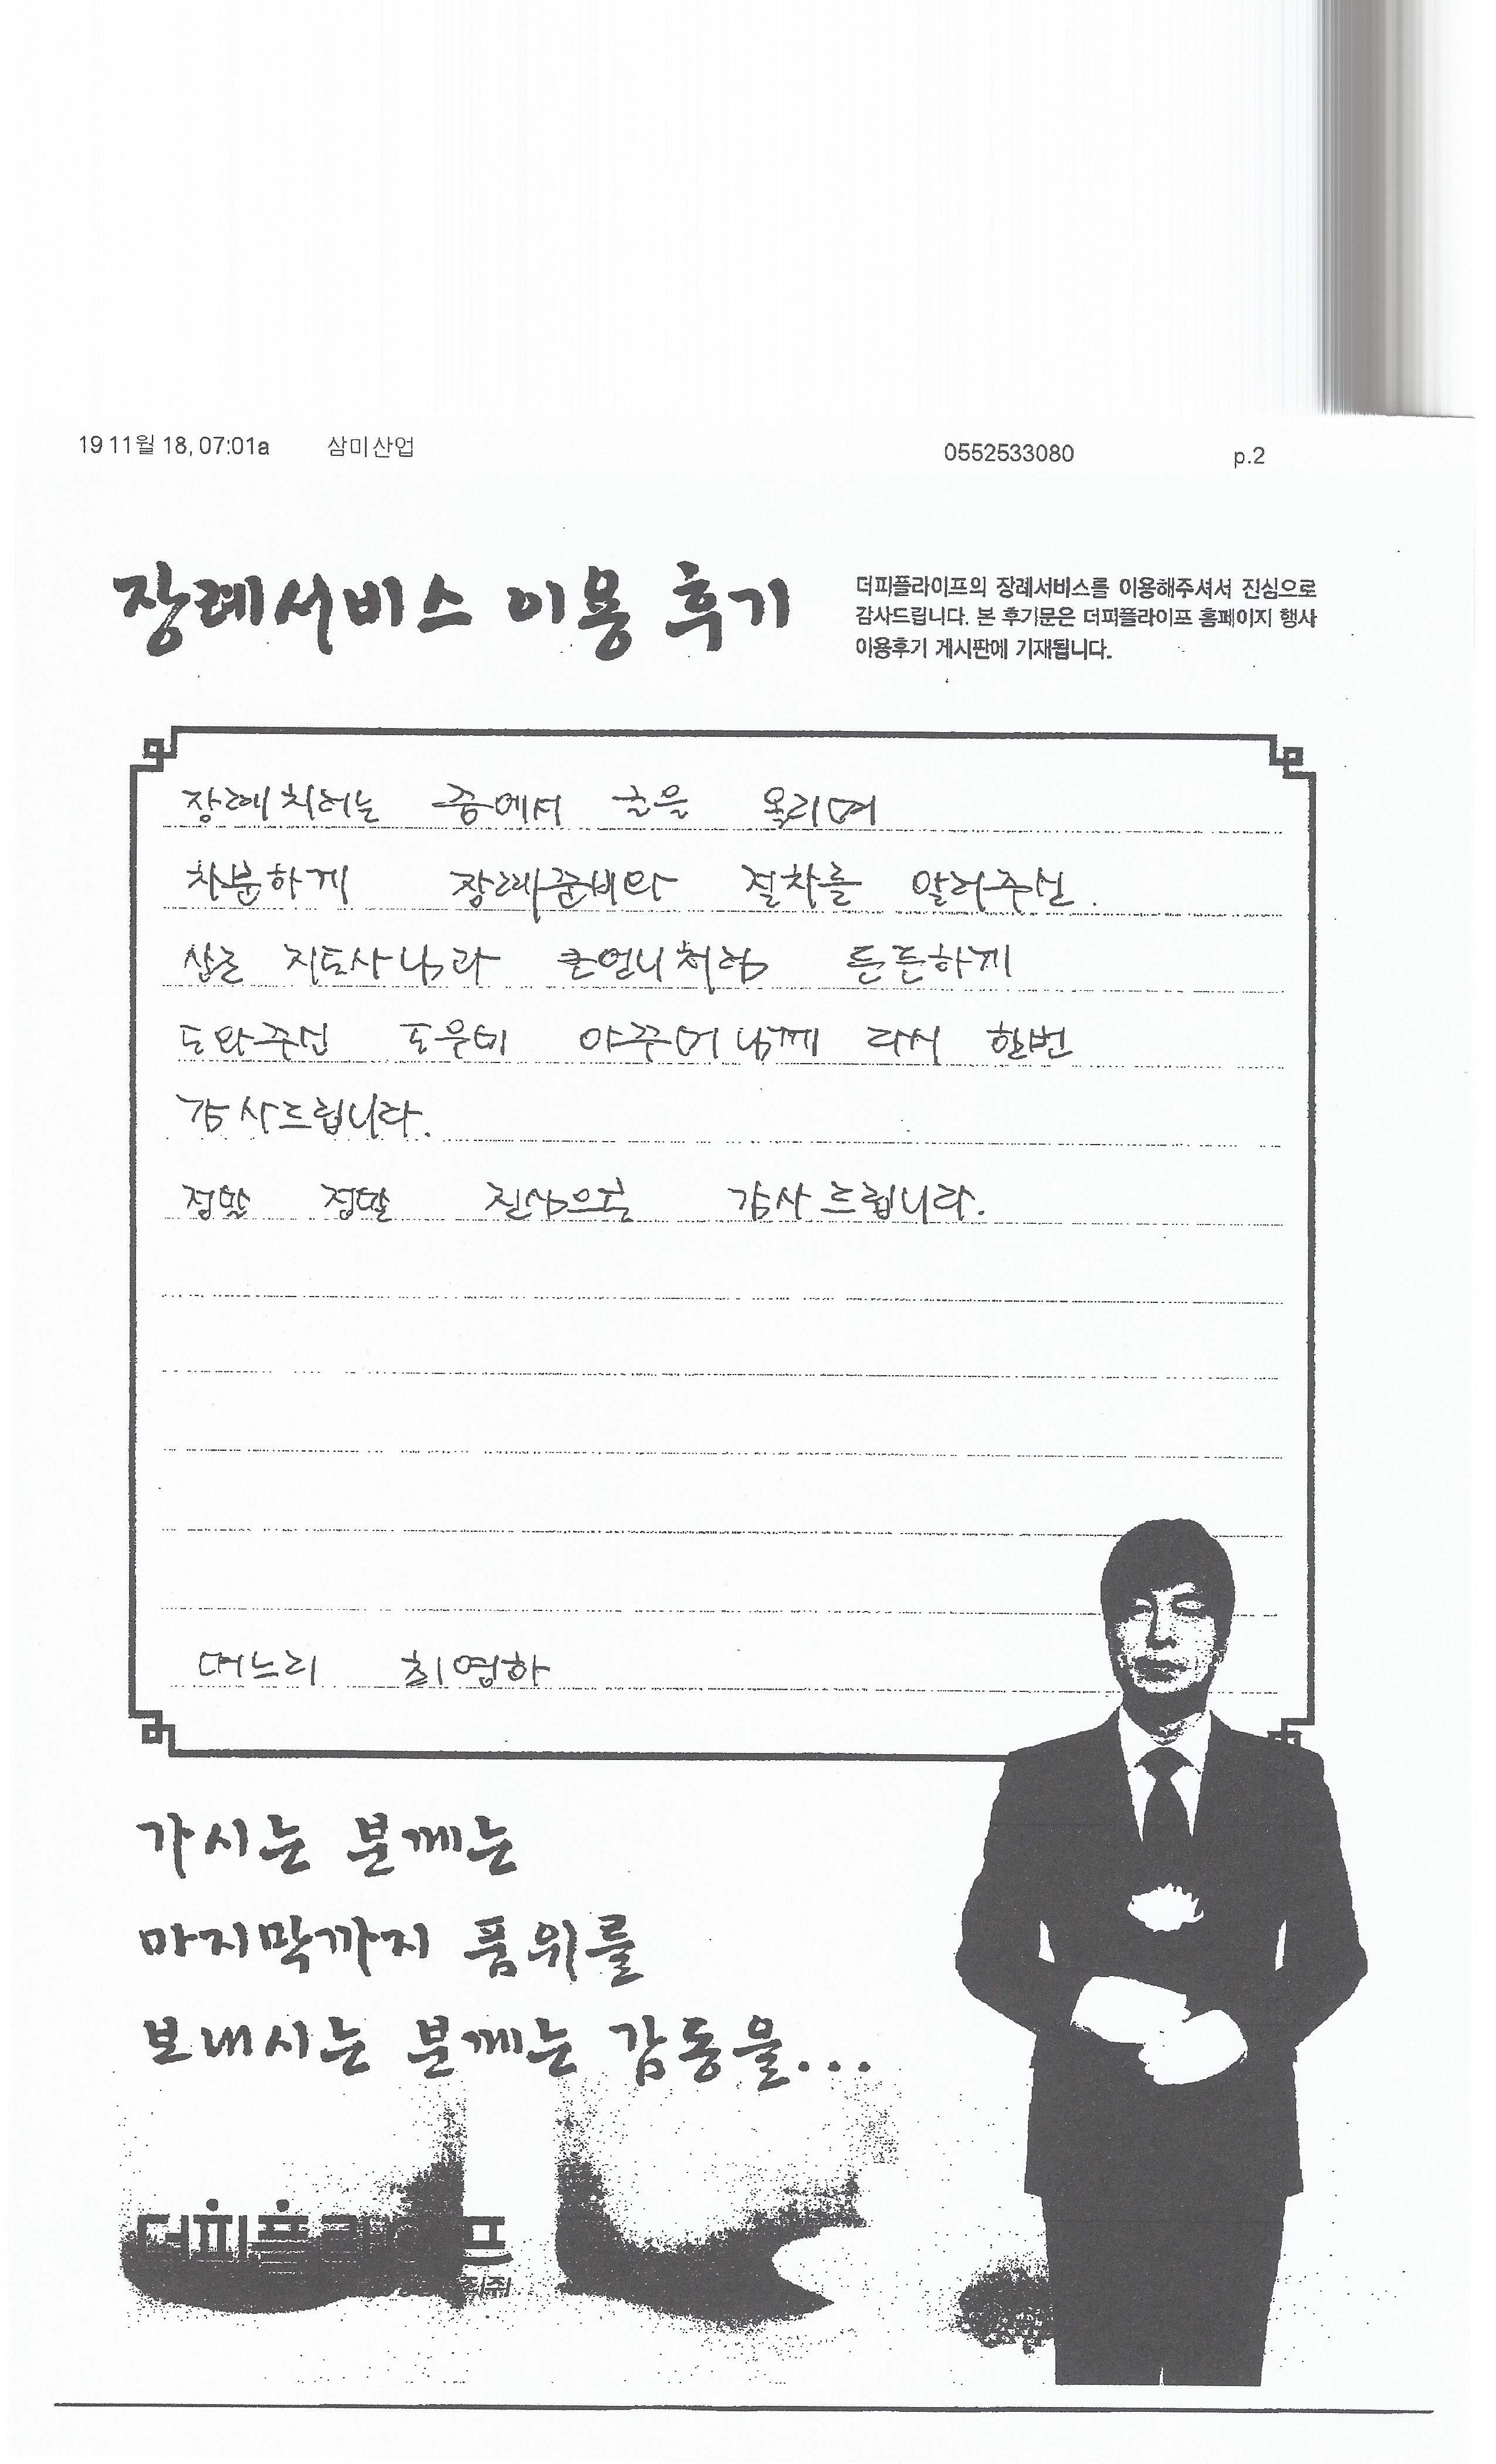 19 11월 18, 07:01a 삼미산업 0552533080 p.2
장례서비스 이용 후기
더피플라이프의 장례서비스를 이용해주셔서 진심으로
감사드립니다. 본 후기문은 더피플라이프 홈페이지 행사
이용후기 게시판에 기재됩니다.
장례치러는 중에서 글을 올리며
차분하게 장례준비와 절차를 알려주신.
지도사님과 큰언니처럼 든든하게
도와주신 도우미 아주머님께 다시 한번
감사드립니다.
정말 정말 진심으로 감사드립니다.
며느리 최영하
가시는 분께는
마지막까지 품위를
보내시는 분께는 감동을...
더피플라이프